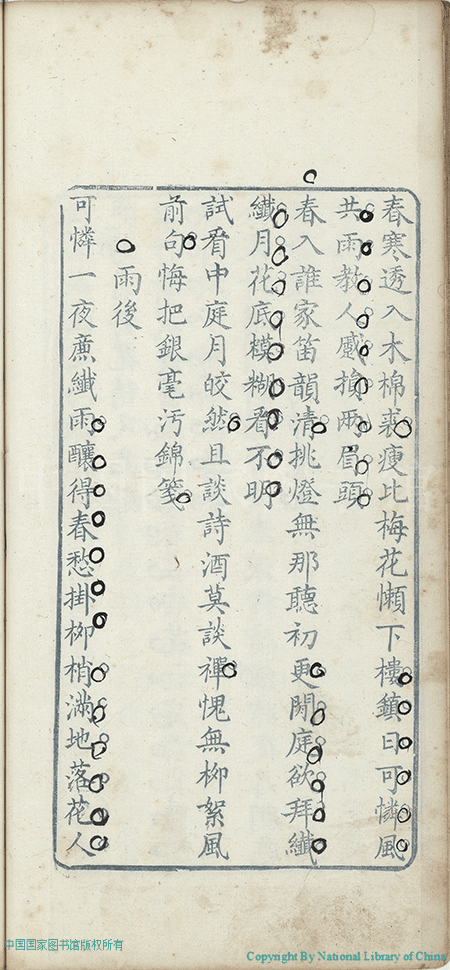 春寒透入木棉裘瘦比梅花懶下樓鎮日可憐風
共雨教人感損兩眉頭
春入誰家笛韻清挑燈無那聽初更閑庭欲拜纖
纖月花底模糊看不明
試看中庭月皎然且談詩酒莫談禪愧無柳絮風
前句悔把銀毫汚錦箋
雨後
可憐一夜麃纖雨釀得春愁掛柳梢滿地落花人
中国国家图书馆版权所有
Copyright By National Library of China